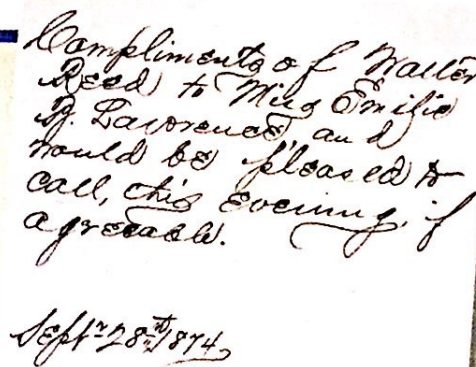 Compliments of Walter
Reed to Miss Emilie
B. Lawrence, and
would be pleased to
call, this evening, if
agreeable.
Sept. 28th 1874